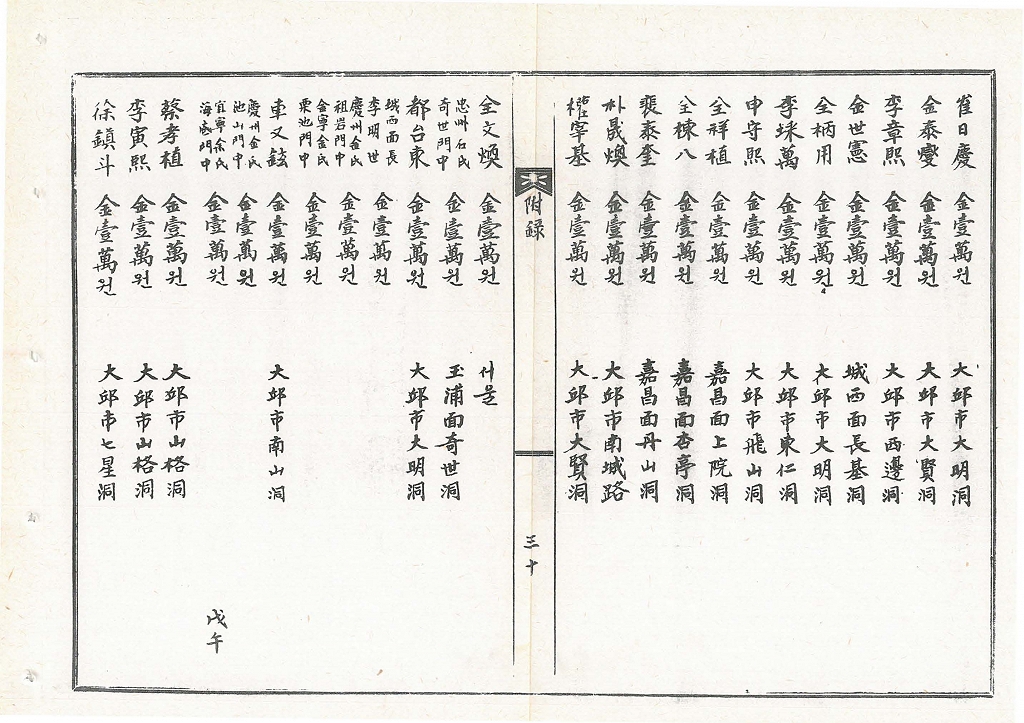 崔日慶 金壹萬원 大邱市大明洞
金泰燮 金壹萬원 大邱市大賢洞
李章熙 金壹萬원 大邱市西邊洞
金世憲 金壹萬원 城西面長基洞
全柄用 金壹萬원 大邱市大明洞
李埰萬 金壹萬원 大邱市東仁洞
申守熙 金壹萬원 大邱市飛山洞
全祥植 金壹萬원 嘉昌面上院洞
全棟八 金壹萬원 嘉昌面杏亭洞
裵泰奎 金壹萬원 嘉昌面丹山洞
朴晟煥 金壹萬원 大邱市南城路
權寧基 金壹萬원 大邱市大賢洞
附錄
三十
全文煥 金壹萬원 서울
忠州石氏
奇世門中 金壹萬원 玉浦面奇世洞
都台東 金壹萬원 大邱市大明洞
城西面長
李明世 金壹萬원
慶州金氏
祖岩門中 金壹萬원
金寧金氏
栗池門中 金壹萬원
車又鉉 金壹萬원 大邱市南山洞
慶州金氏
池山門中 金壹萬원
宜寧余氏
海戚門中 金壹萬원 戊午
蔡孝植 金壹萬원 大邱市山格洞
李寅熙 金壹萬원 大邱市山格洞
徐鎭斗 金壹萬원 大邱市七星洞